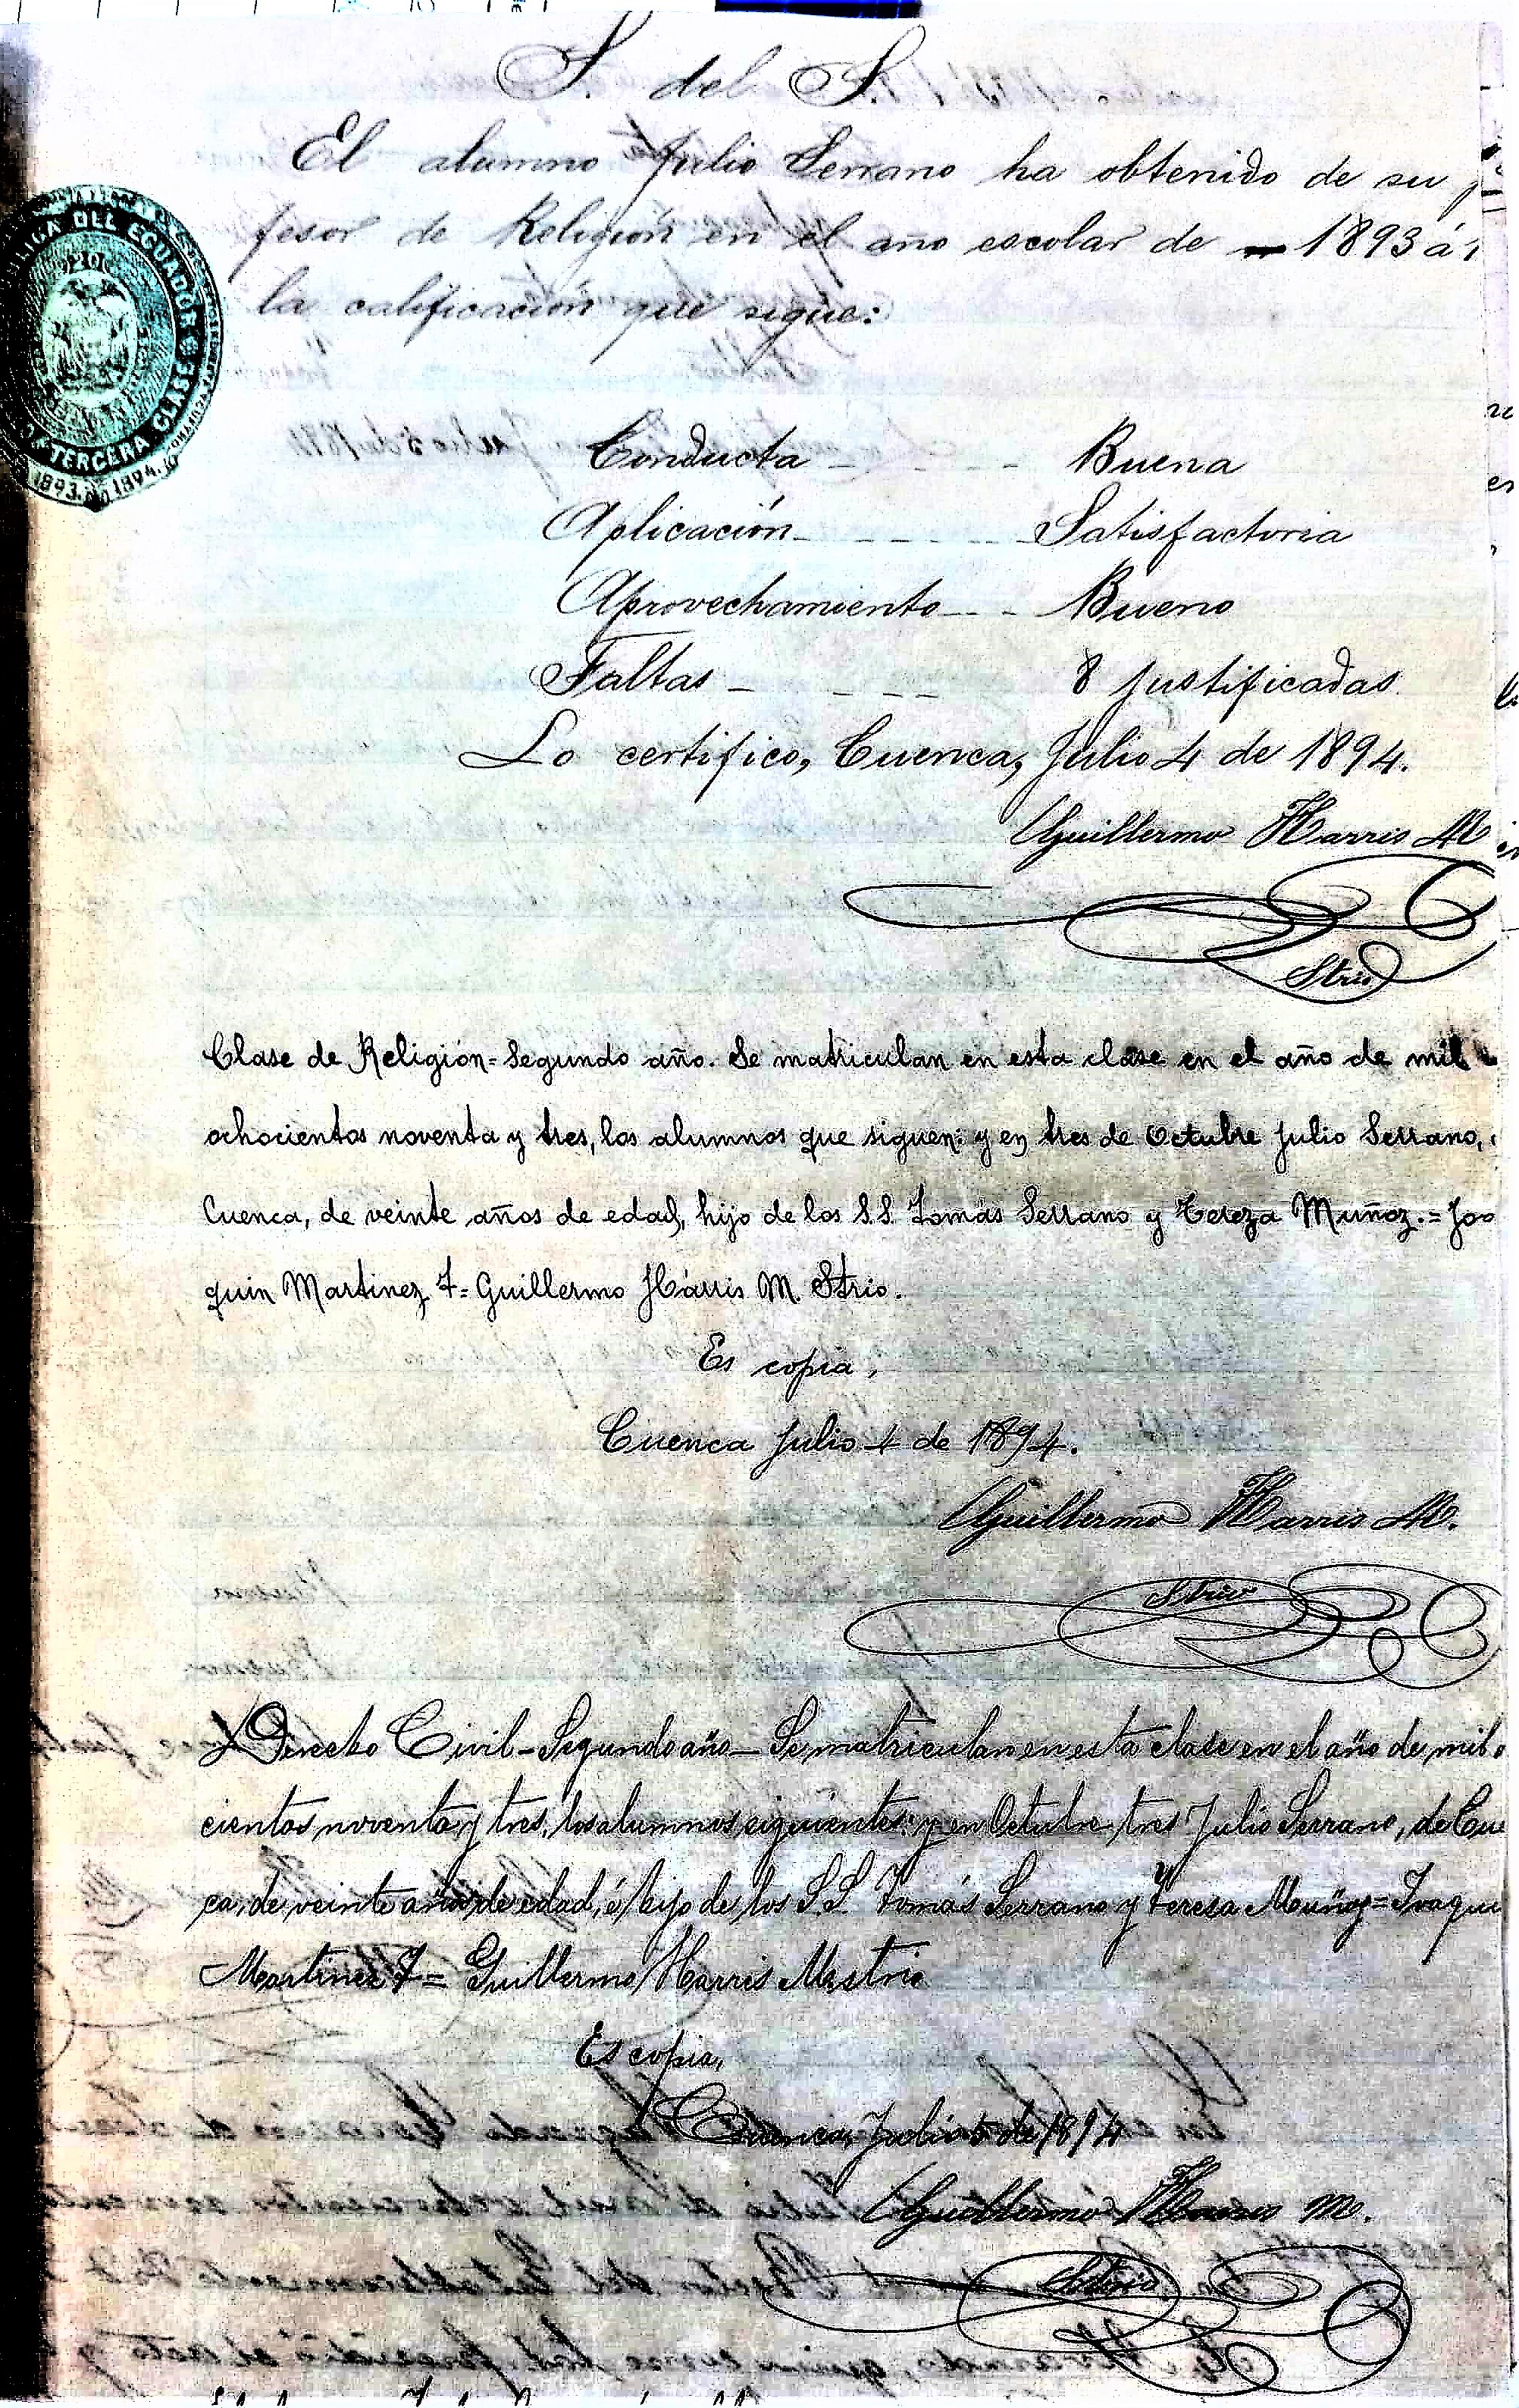 S. del S.
El alumno Julio Serrano ha obtenido de su
fesor de Religión en el año escolar de 1893 á
la calificación que sigue:
REPUBLICA DEL ECUADOR
TERCERA CLASE
1893. 1894.
Conducta - - - - Buena
Aplicación - - - - - Satisfactoria
Aprovechamiento - - - Bueno
Faltas - - - - 8 justificadas
Lo certifico, Cuenca, Julio 4 de 1894.
Guillermo Harris M
Strio
Clase de Religión = Segundo año. Se matriculan en esta clase en el año de mil
ochocientos noventa y tres, los alumnos que siguen: y en tres de Octubre Julio Serrano,
Cuenca, de veinte años de edad, hijo de los S.S. Tomás Serrano y Tereza Muñoz. = Joa
quin Martinez T = Guillermo Hárris M. Strio.
Es copia,
Cuenca Julio 4 de 1894.
Guillermo Harris M.
Strio
Derecho Civil - Segundo año - Se matriculan en esta clase en el año de mil o
cientos noventa y tres, los alumnos siguientes: y en Octubre tres Julio Serrano, de Cue
ca, de veinte años de edad, é hijo de los S.S. Tomás Serrano y Teresa Muñoz = Joaqui
Martinez T = Guillermo Harris M strio
Es copia,
Cuenca, Julio 5 de 1894
Guillermo Harris M.
Strio